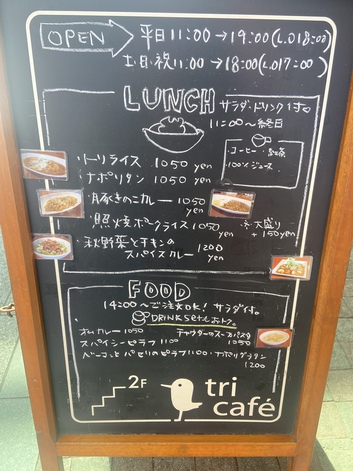 OPEN 平日11:00→19:00(L.O18:00)
土日・祝11:00→18:00(L.O17:00)
LUNCH サラダ・ドリンク付。
11:00〜終日
コーヒー・紅茶
100%ジュース
・トリライス 1050 yen
・ナポリタン 1050 yen
・豚きのこカレー 1050 yen
・照焼ポークライス 1050 yen
※大盛り +150yen
・秋野菜とチキンの
スパイスカレー 1200 yen
FOOD
14:00〜ご注文OK! サラダ付。
DRINKsetもおトク。
オムカレー 1050
チャウダーのスープパスタ 1050
スパイシーピラフ 1100
ベーコンとパセリのピラフ 1100 ・ナポリグラタン
1200
2F
tri
café